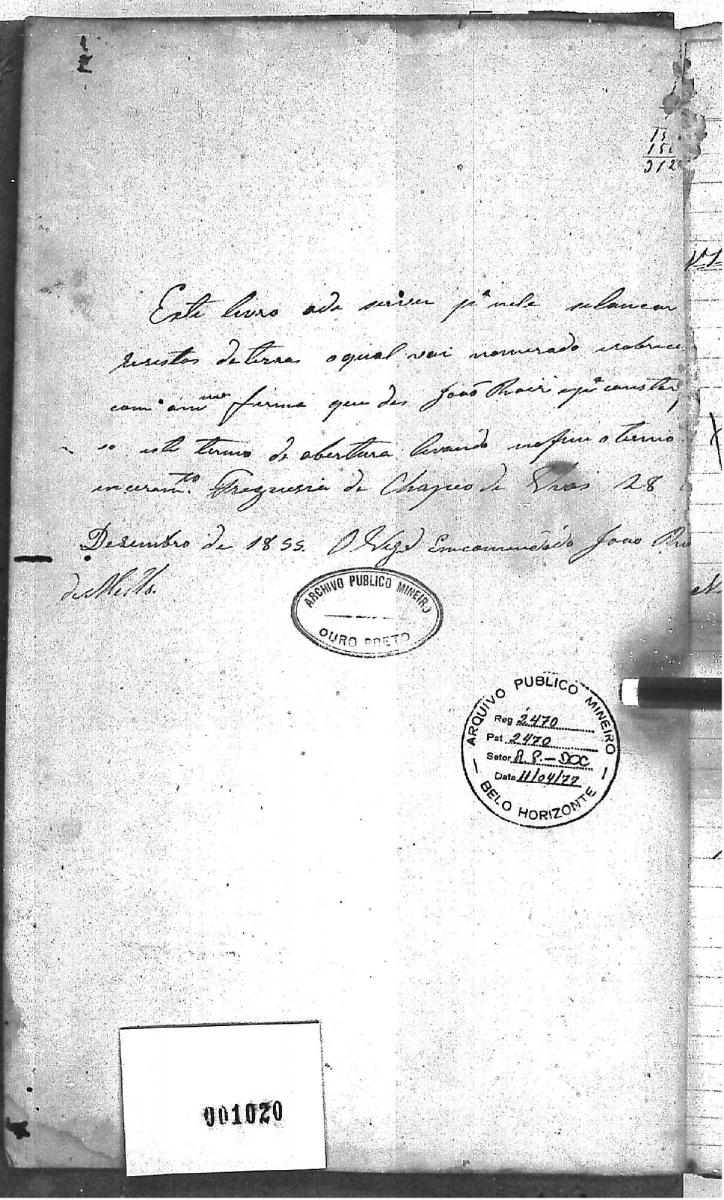 Este livro ade servir pª nele selancar
de terras oqual vai numerado
com am^ma firma que diz João
este termo de abertura levando nofim o termo
Freguesia de Chapeo de Uvas 28
Dezembro de 1855. O Vigº Emcomendado João
de Mello.
ARCHIVO PUBLICO MINEIRO
OURO PRETO
ARQUIVO PUBLICO MINEIRO
Reg 2470
Pat 2470
Setor A.P.-DOC
Data 11/04/77
BELO HORIZONTE
001020